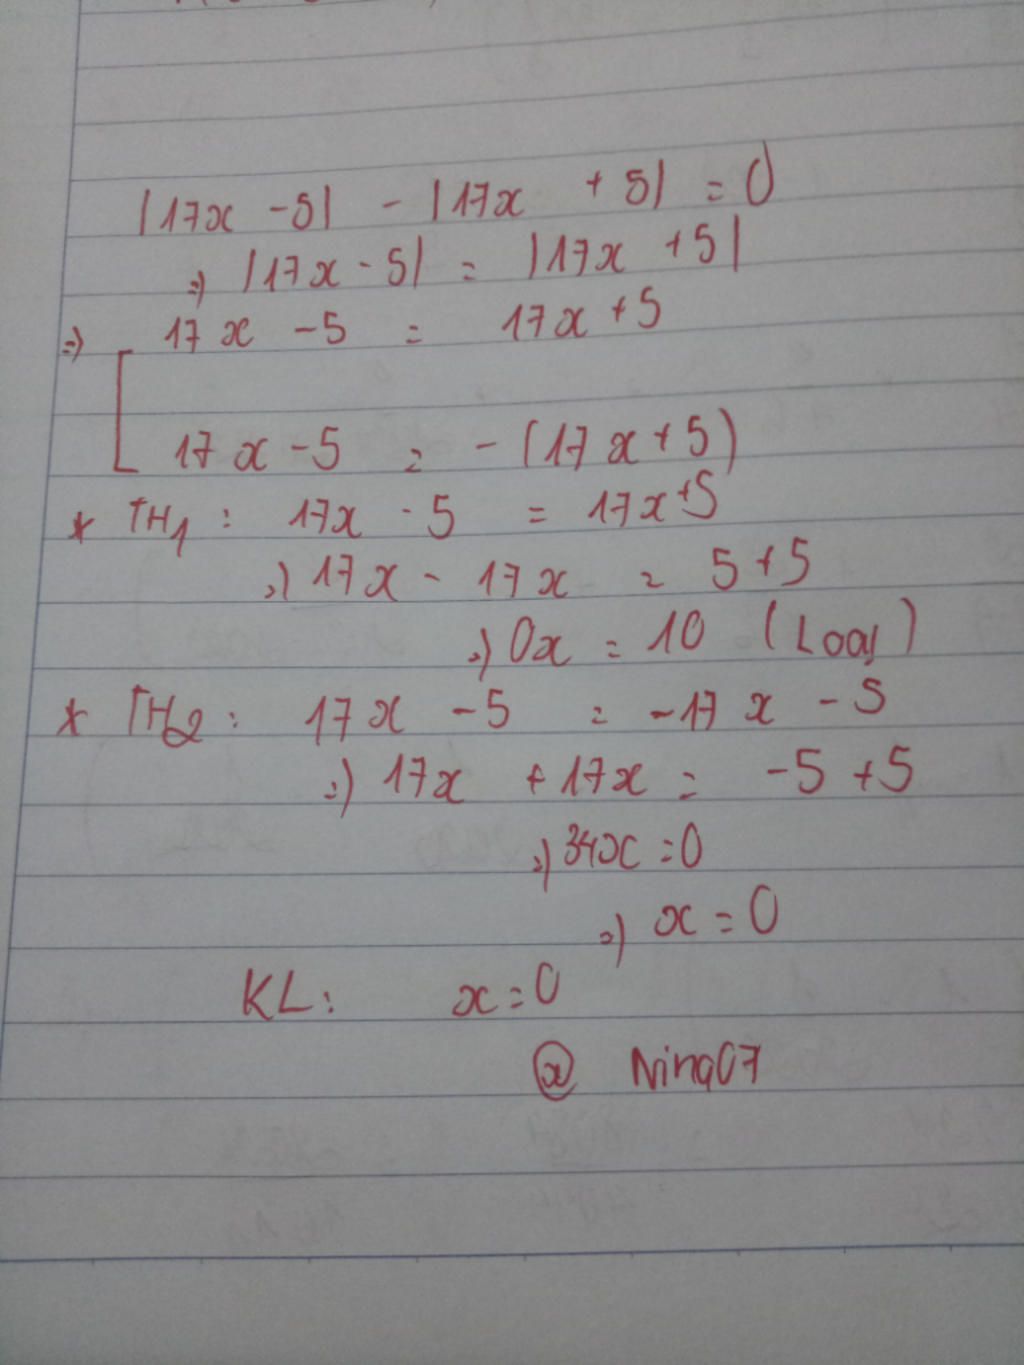 |17x - 5| - |17x + 5| = 0
=) |17x - 5| = |17x + 5|
=) [ 17x - 5 = 17x + 5
17x - 5 = - (17x + 5)
* TH1 : 17x - 5 = 17x + 5
=) 17x - 17x = 5 + 5
=) 0x = 10 (Loại)
* TH2 : 17x - 5 = -17x - 5
=) 17x + 17x = -5 + 5
=) 34x = 0
=) x = 0
KL : x = 0
@ Nina07